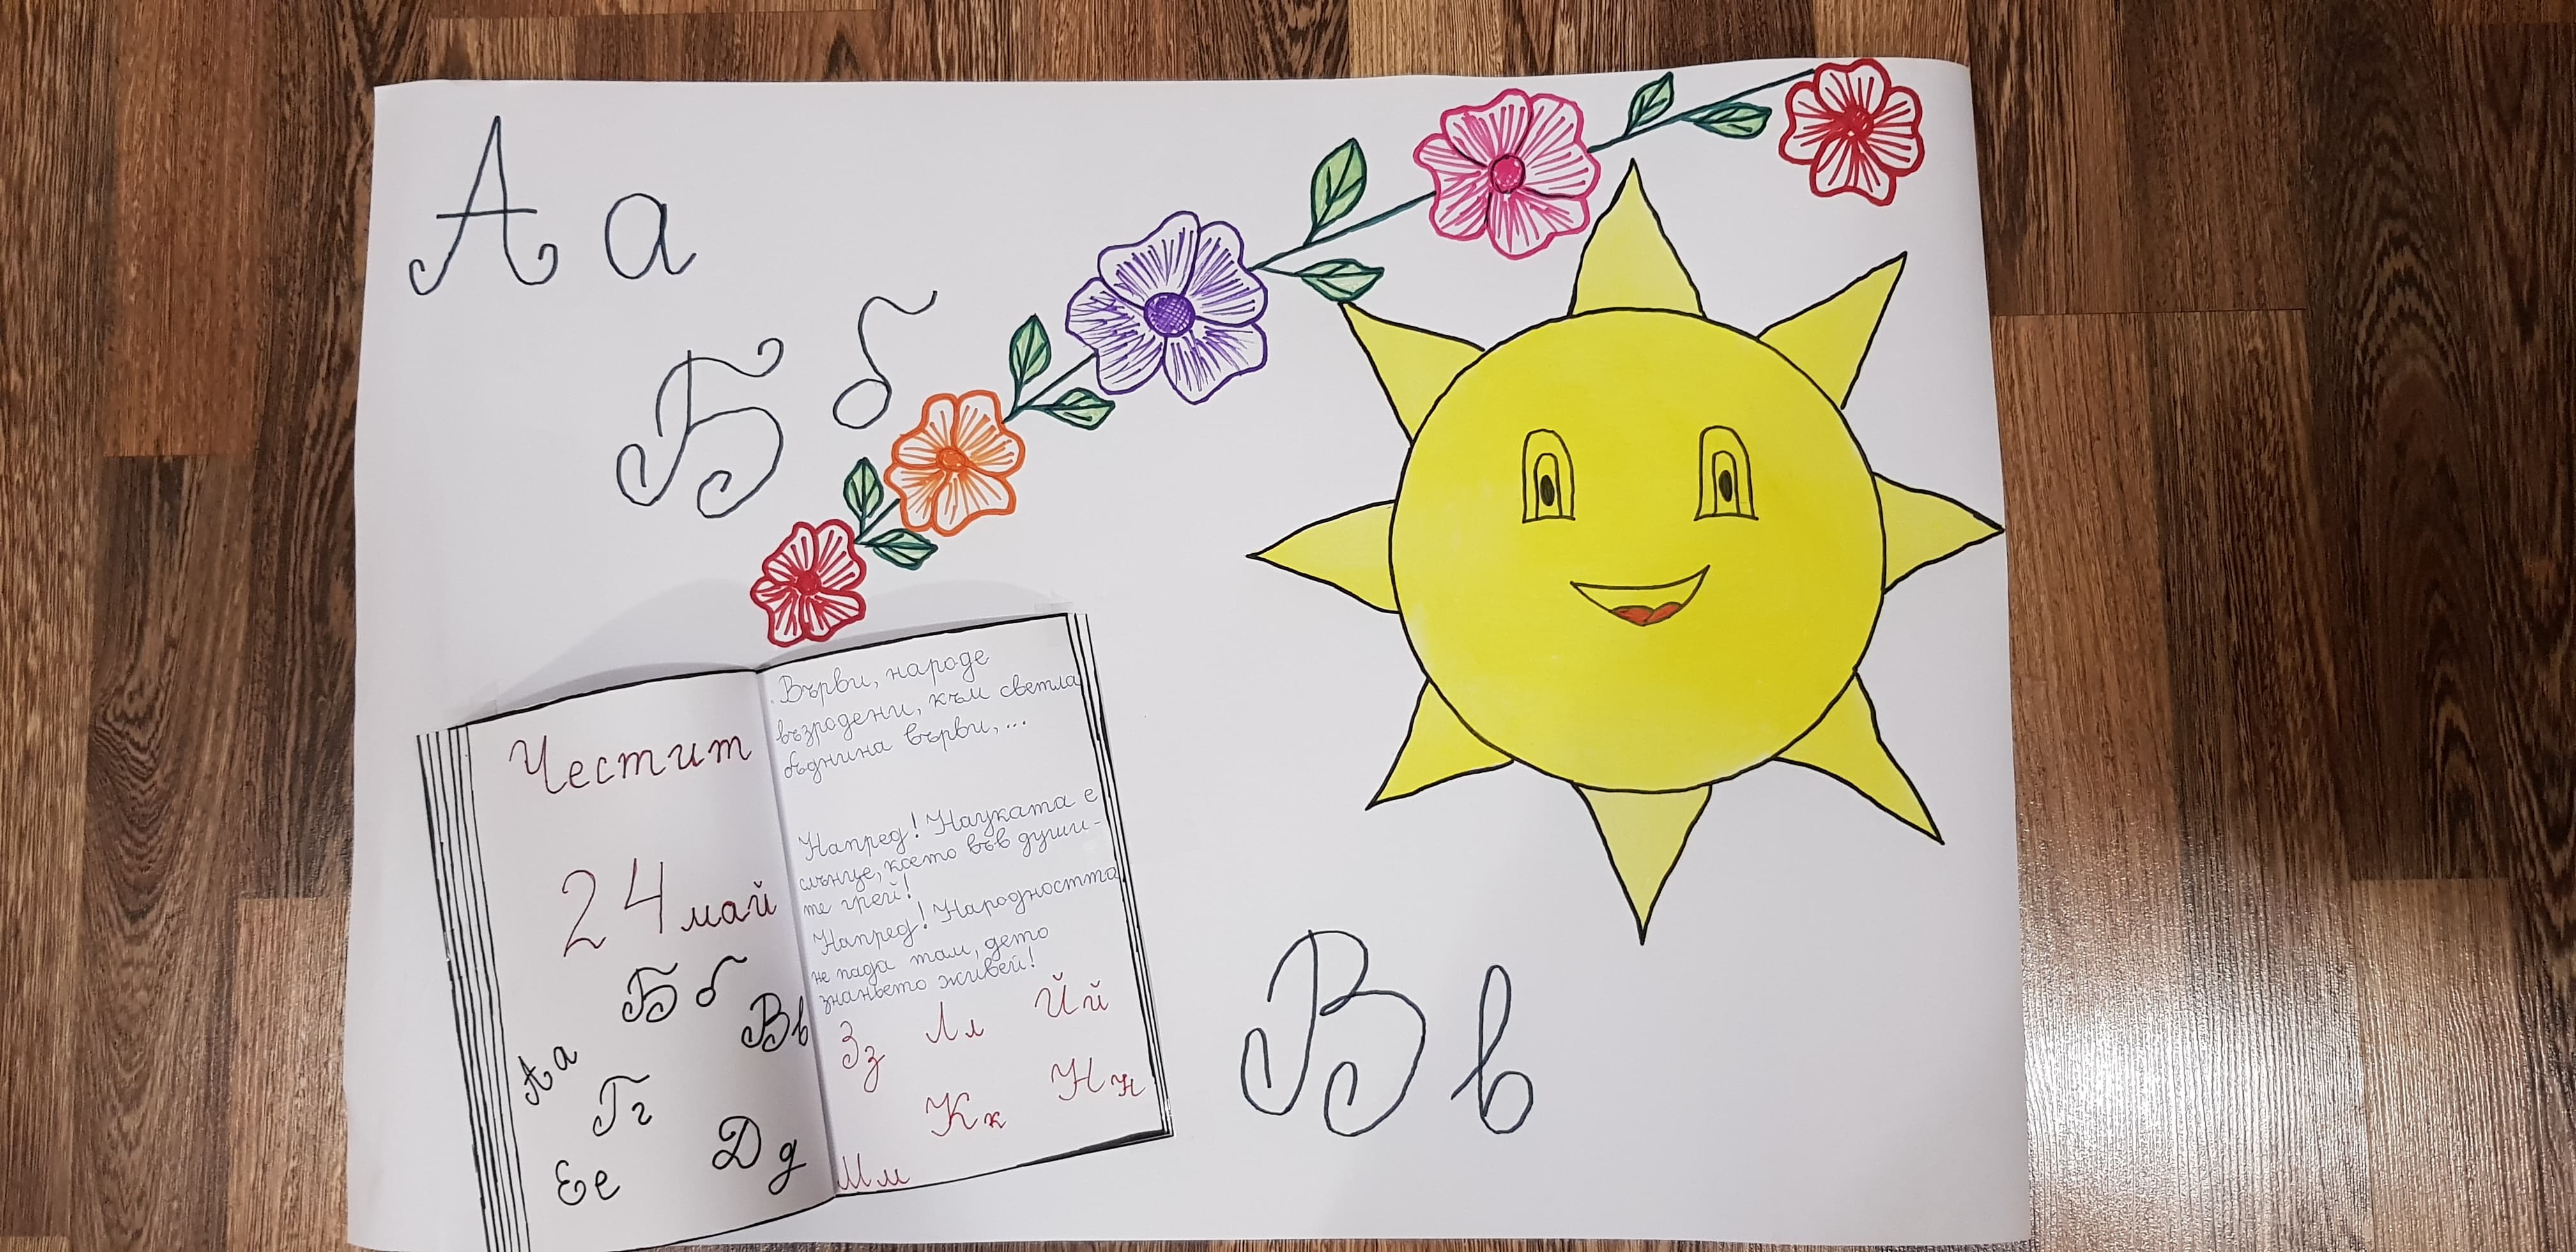 А а
Б б
Честит
24 май
Б б
В в
А а
Г г
Д д
Е е
Върви, народе
възродени, към светла
бъднина върви, ...
Напред! Науката е
слънце, което във души-
те грей!
Напред! Народността
не пада там, дето
знаньето живей!
З з
Л л
Й й
К к
Н н
М м
В в